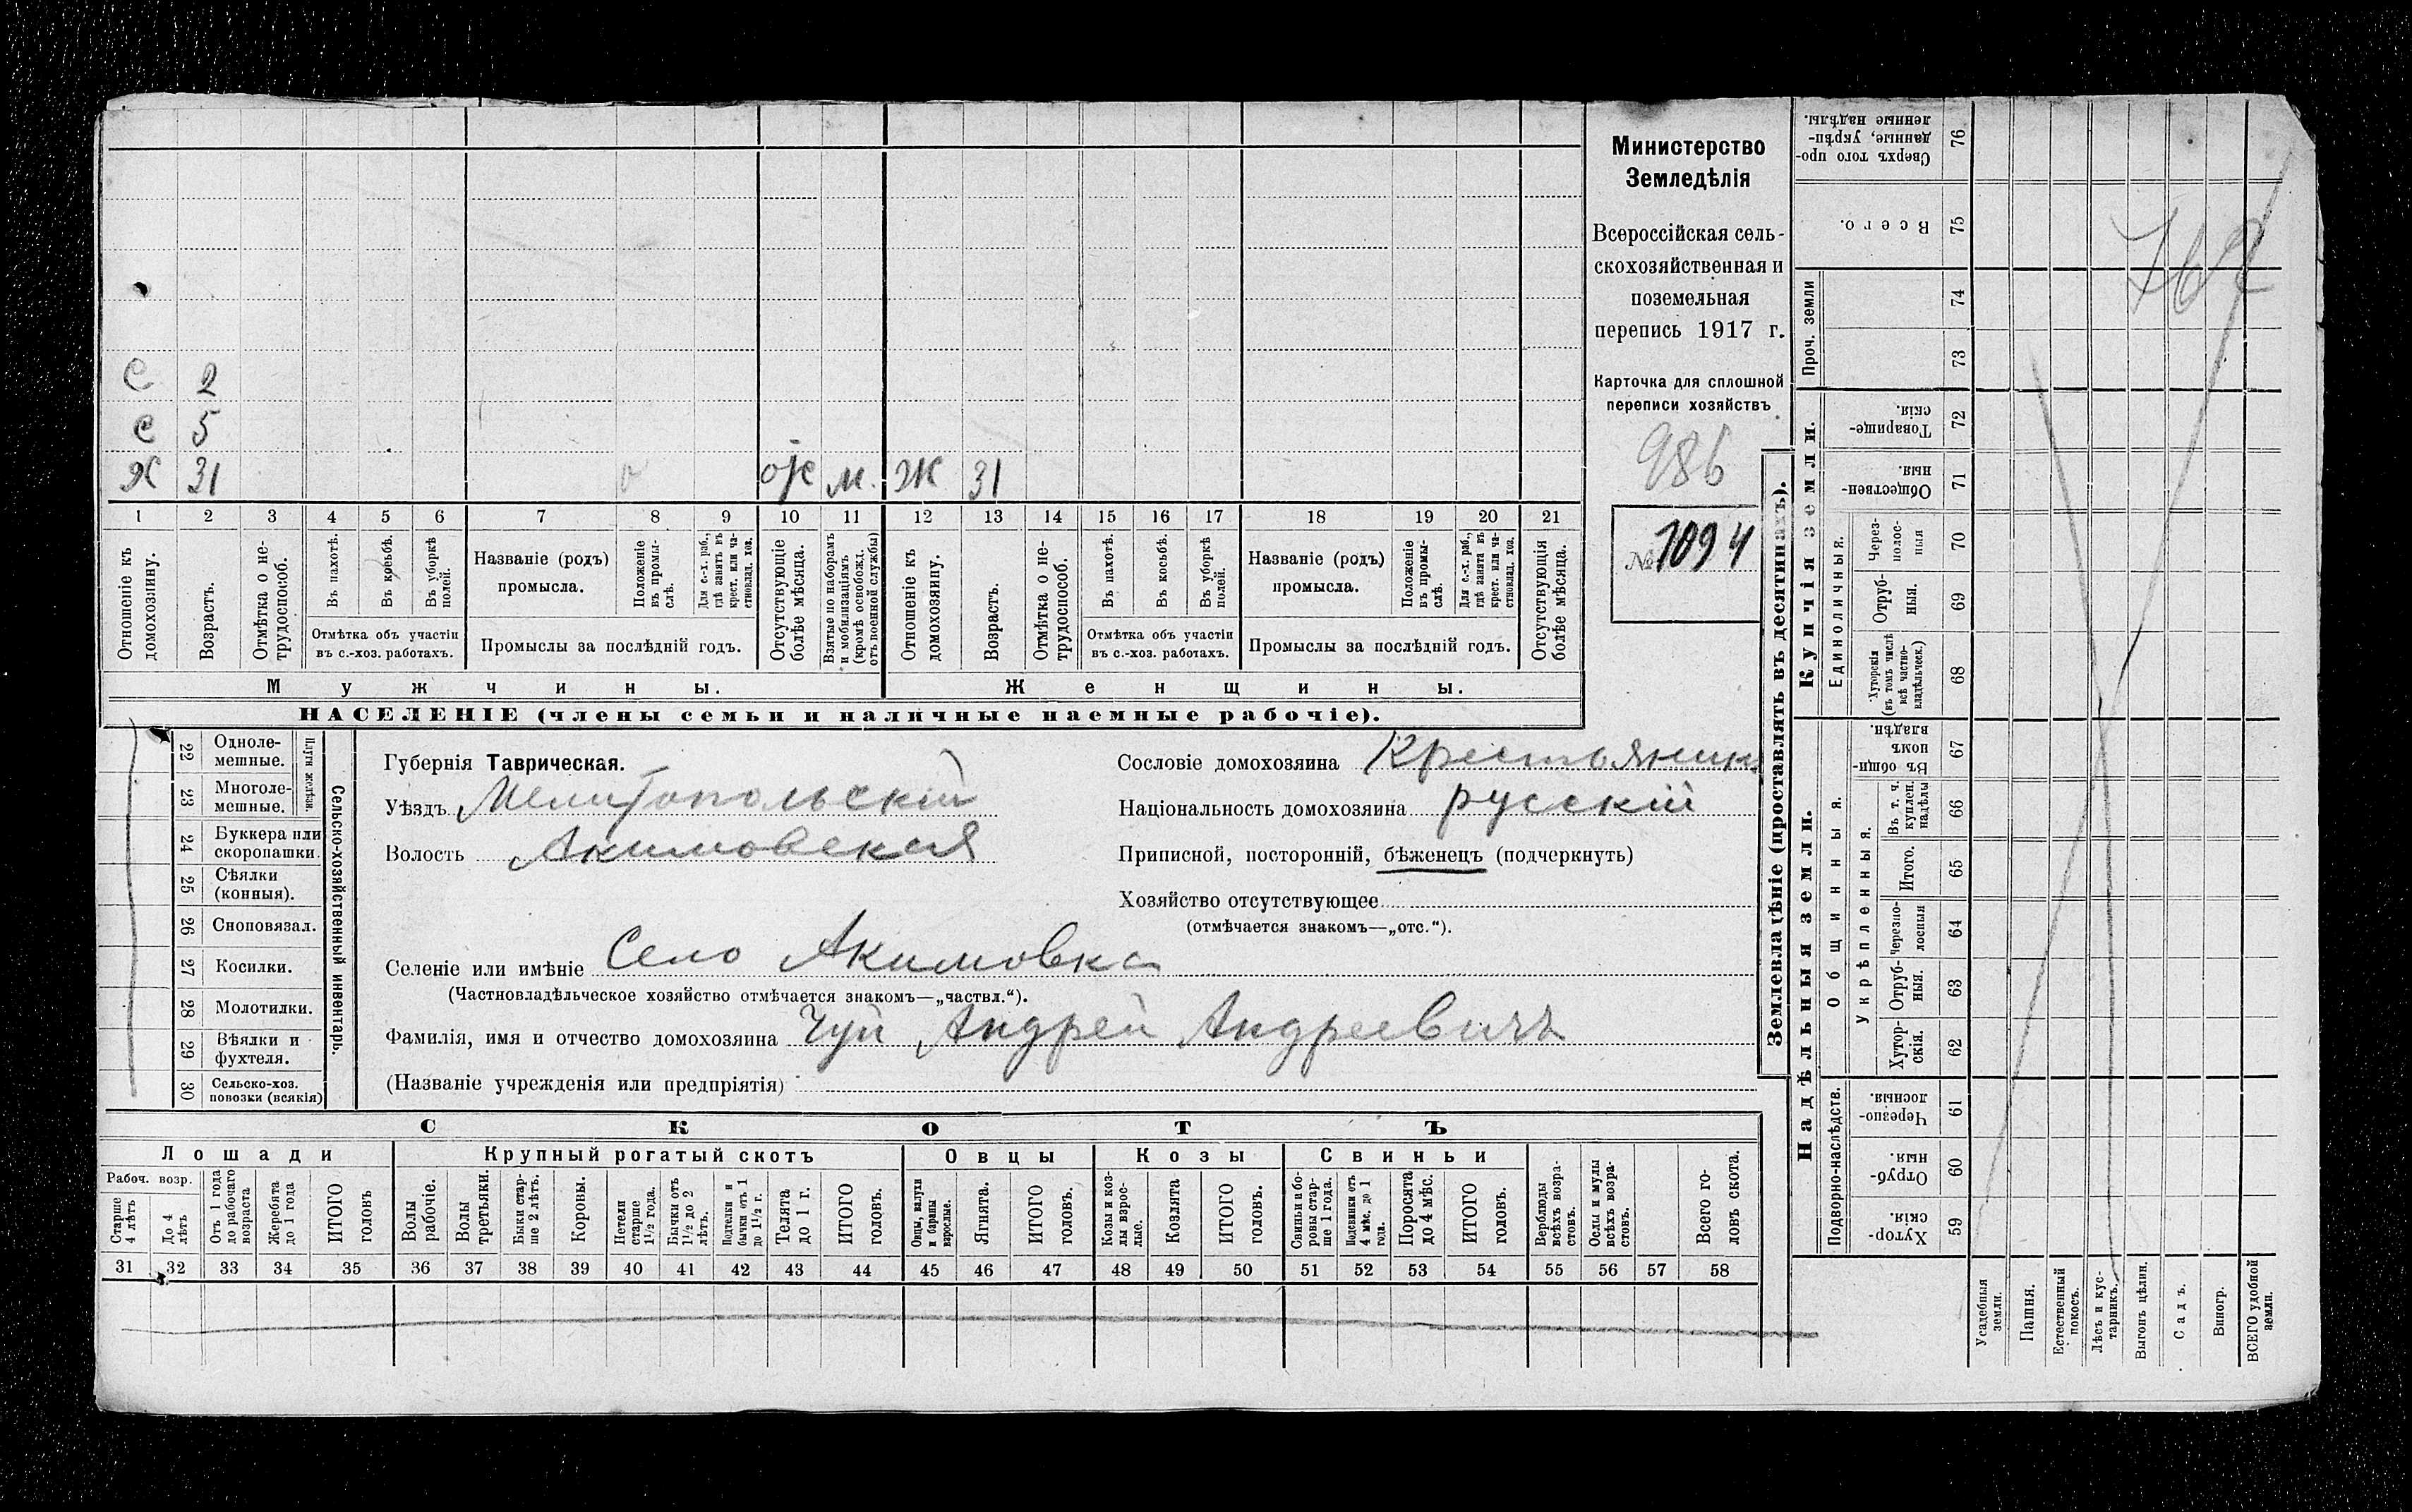 С 2
С 5
Х 31 ОЖ м. Ж 31
1 2 3 4 5 6 7 8 9 10 11 12 13 14 15 16 17 18 19 20 21
Отношеніе къ домохозяину.
Возрастъ.
Отмѣтка о не-трудоспособ.
Въ пахотѣ.
Въ косьбѣ.
Въ уборкѣ полей.
Отмѣтка объ участіи
въ с.-хоз. работахъ.
Названіе (родъ)
промысла.
Положеніе въ промы-слѣ.
Для с.-х. раб., гдѣ занятъ въ крест. или ча-стновлад. хоз.
Промыслы за послѣдній годъ.
Отсутствующіе болѣе мѣсяца.
Взятые по наборамъ и мобилизаціямъ (кромѣ освобожд. отъ военной службы)
Отношеніе къ домохозяину.
Возрастъ.
Отмѣтка о не-трудоспособ.
Въ пахотѣ.
Въ косьбѣ.
Въ уборкѣ полей.
Отмѣтка объ участіи
въ с.-хоз. работахъ.
Названіе (родъ)
промысла.
Положеніе въ промы-слѣ.
Для с.-х. раб., гдѣ занята въ крест. или ча-стновлад. хоз.
Промыслы за послѣдній годъ.
Отсутствующія болѣе мѣсяца.
Мужчины.
Женщины.
НАСЕЛЕНІЕ (члены семьи и наличные наемные рабочіе).
Министерство
Земледѣлія
Всероссійская сель-
скохозяйственная и
поземельная
перепись 1917 г.
Карточка для сплошной
переписи хозяйствъ
986
№ 1094
22 Одноле-
мешные.
23 Многоле-
мешные.
Плуги желѣзн.
24 Буккера или
скоропашки.
25 Сѣялки
(конныя).
26 Сноповязал.
27 Косилки.
28 Молотилки.
29 Вѣялки и
фухтеля.
30 Сельско-хоз.
повозки (всякія)
Сельско-хозяйственный инвентарь.
Губернія Таврическая.
Уѣздъ Мелитопольскій
Волость Акимовская
Сословіе домохозяина Крестьянинъ
Національность домохозяина русскій
Приписной, посторонній, бѣженецъ (подчеркнуть)
Хозяйство отсутствующее
(отмѣчается знакомъ—„отс.“).
Селеніе или имѣніе Село Акимовка
(Частновладѣльческое хозяйство отмѣчается знакомъ—„частвл.“).
Фамилія, имя и отчество домохозяина Чуй Андрей Андреевичъ
(Названіе учрежденія или предпріятія)
СКОТЪ
Лошади
Крупный рогатый скотъ
Овцы
Козы
Свиньи
Рабоч. возр.
Старше 4 лѣтъ
До 4 лѣтъ
Отъ 1 года до рабочаго возраста
Жеребята до 1 года
ИТОГО головъ
Волы рабочіе.
Волы третьяки.
Быки стар-ше 2 лѣтъ.
Коровы.
Нетели старше 1½ года.
Бычки отъ 1½ до 2 лѣтъ.
Подтелки и бычки отъ 1 до 1½ г.
Телята до 1 г.
ИТОГО головъ.
Овцы, валухи и бараны взрослые.
Ягнята.
ИТОГО головъ.
Козы и коз-лы взрос-лые.
Козлята
ИТОГО головъ.
Свиньи и бо-ровы стар-ше 1 года.
Подсвинки отъ 4 мѣс. до 1 года.
Поросята до 4 мѣс.
ИТОГО головъ.
Верблюды всѣхъ возра-стовъ.
Ослы и мулы всѣхъ возра-стовъ.
Всего го-ловъ скота.
31 32 33 34 35 36 37 38 39 40 41 42 43 44 45 46 47 48 49 50 51 52 53 54 55 56 57 58
Землевладѣніе (проставлять въ десятинахъ).
Надѣльныя земли.
Купчія земли.
Проч. земли
Сверхъ того про-
данные, укрѣп-
ленные надѣлы.
76
Всего.
75
74
73
Товарище-
скія.
72
Обществен-
ныя.
71
Единоличныя.
Через-
полос-
ныя
70
Отруб-
ныя.
69
Хуторскія
(въ томъ числѣ
всѣ частно-
владѣльческ.)
68
Общинныя.
Въ общи-
номъ
владѣн.
67
Укрѣпленныя.
Въ т. ч.
куплен.
надѣлы
66
Итого.
65
Черезпо-
лосныя
64
Отруб-
ныя.
63
Хутор-
скія.
62
Подворно-наслѣдств.
Черезпо-
лосныя.
61
Отруб-
ныя.
60
Хутор-
скія.
59
Усадебныя земли.
Пашня.
Естественный покосъ.
Лѣсъ и кус-тарникъ.
Выгонъ цѣлин.
Садъ.
Виногр.
ВСЕГО удобной земли.